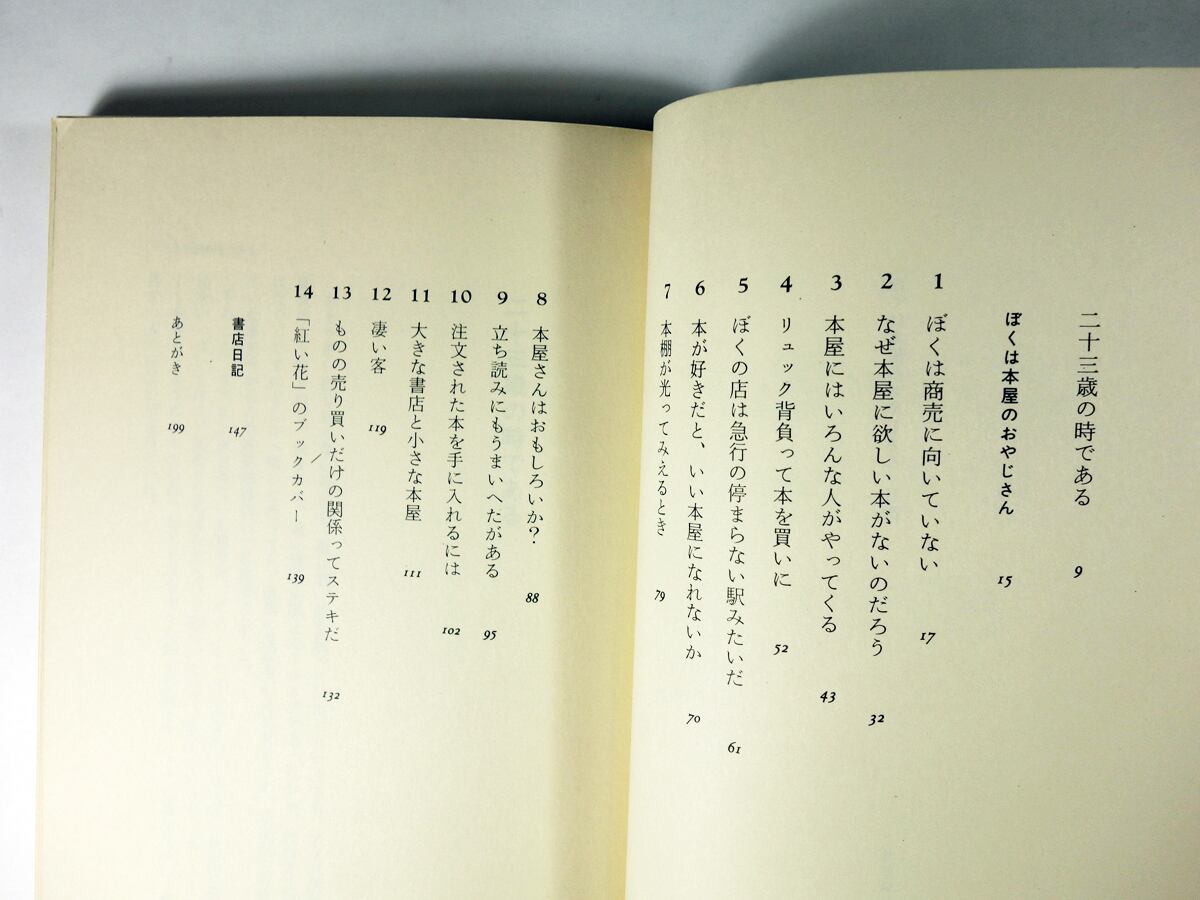 二十三歳の時である 9
ぼくは本屋のおやじさん 15
1 ぼくは商売に向いていない 17
2 なぜ本屋に欲しい本がないのだろう 32
3 本屋にはいろんな人がやってくる 43
4 リュック背負って本を買いに 52
5 ぼくの店は急行の停まらない駅みたいだ 61
6 本が好きだと、いい本屋になれないか 70
7 本棚が光ってみえるとき 79
8 本屋さんはおもしろいか? 88
9 立ち読みにもうまいへたがある 95
10 注文された本を手に入れるには 102
11 大きな書店と小さな本屋 111
12 凄い客 119
13 ものの売り買いだけの関係ってステキだ 132
14 「紅い花」のブックカバー 139
書店日記 147
あとがき 199